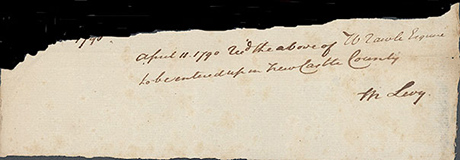 1790
April 11. 1790 Rec'd the above of W Rawle Esquire
to be entered up in New Castle County
M Levy.